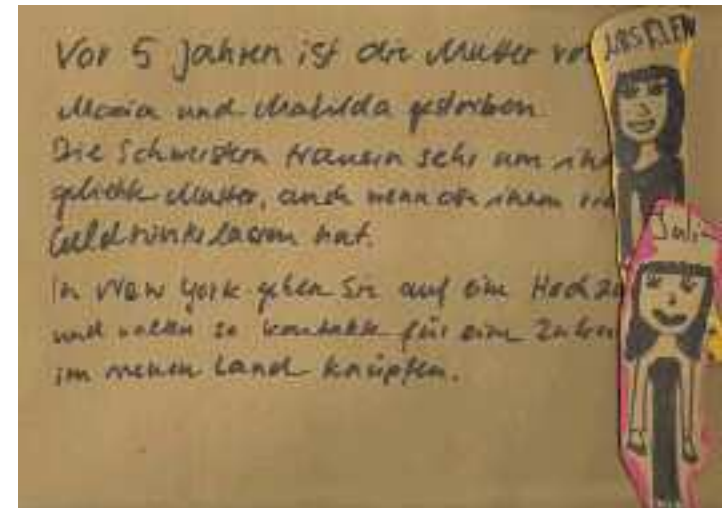 Vor 5 Jahren ist die Mutter vo
Maria und Mathilda gestorben.
Die Schwestern trauern sehr um ihr
geliebte Mutter, auch wenn sie ihnen
Geld hat.
In New York gehen Sie auf eine Hochze
und wollen so Kontakte für eine Zukun
im neuen Land knüpfen.
KLEN
Juli